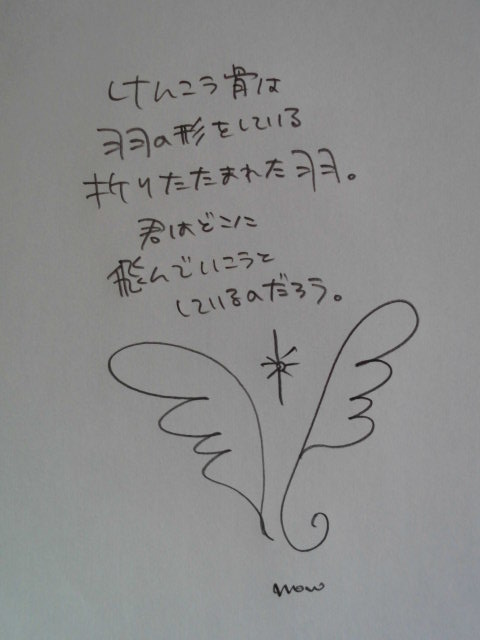 けんこう骨は
羽の形をしている
折りたたまれた羽。
君はどこに
飛んでいこうと
しているのだろう。
mow